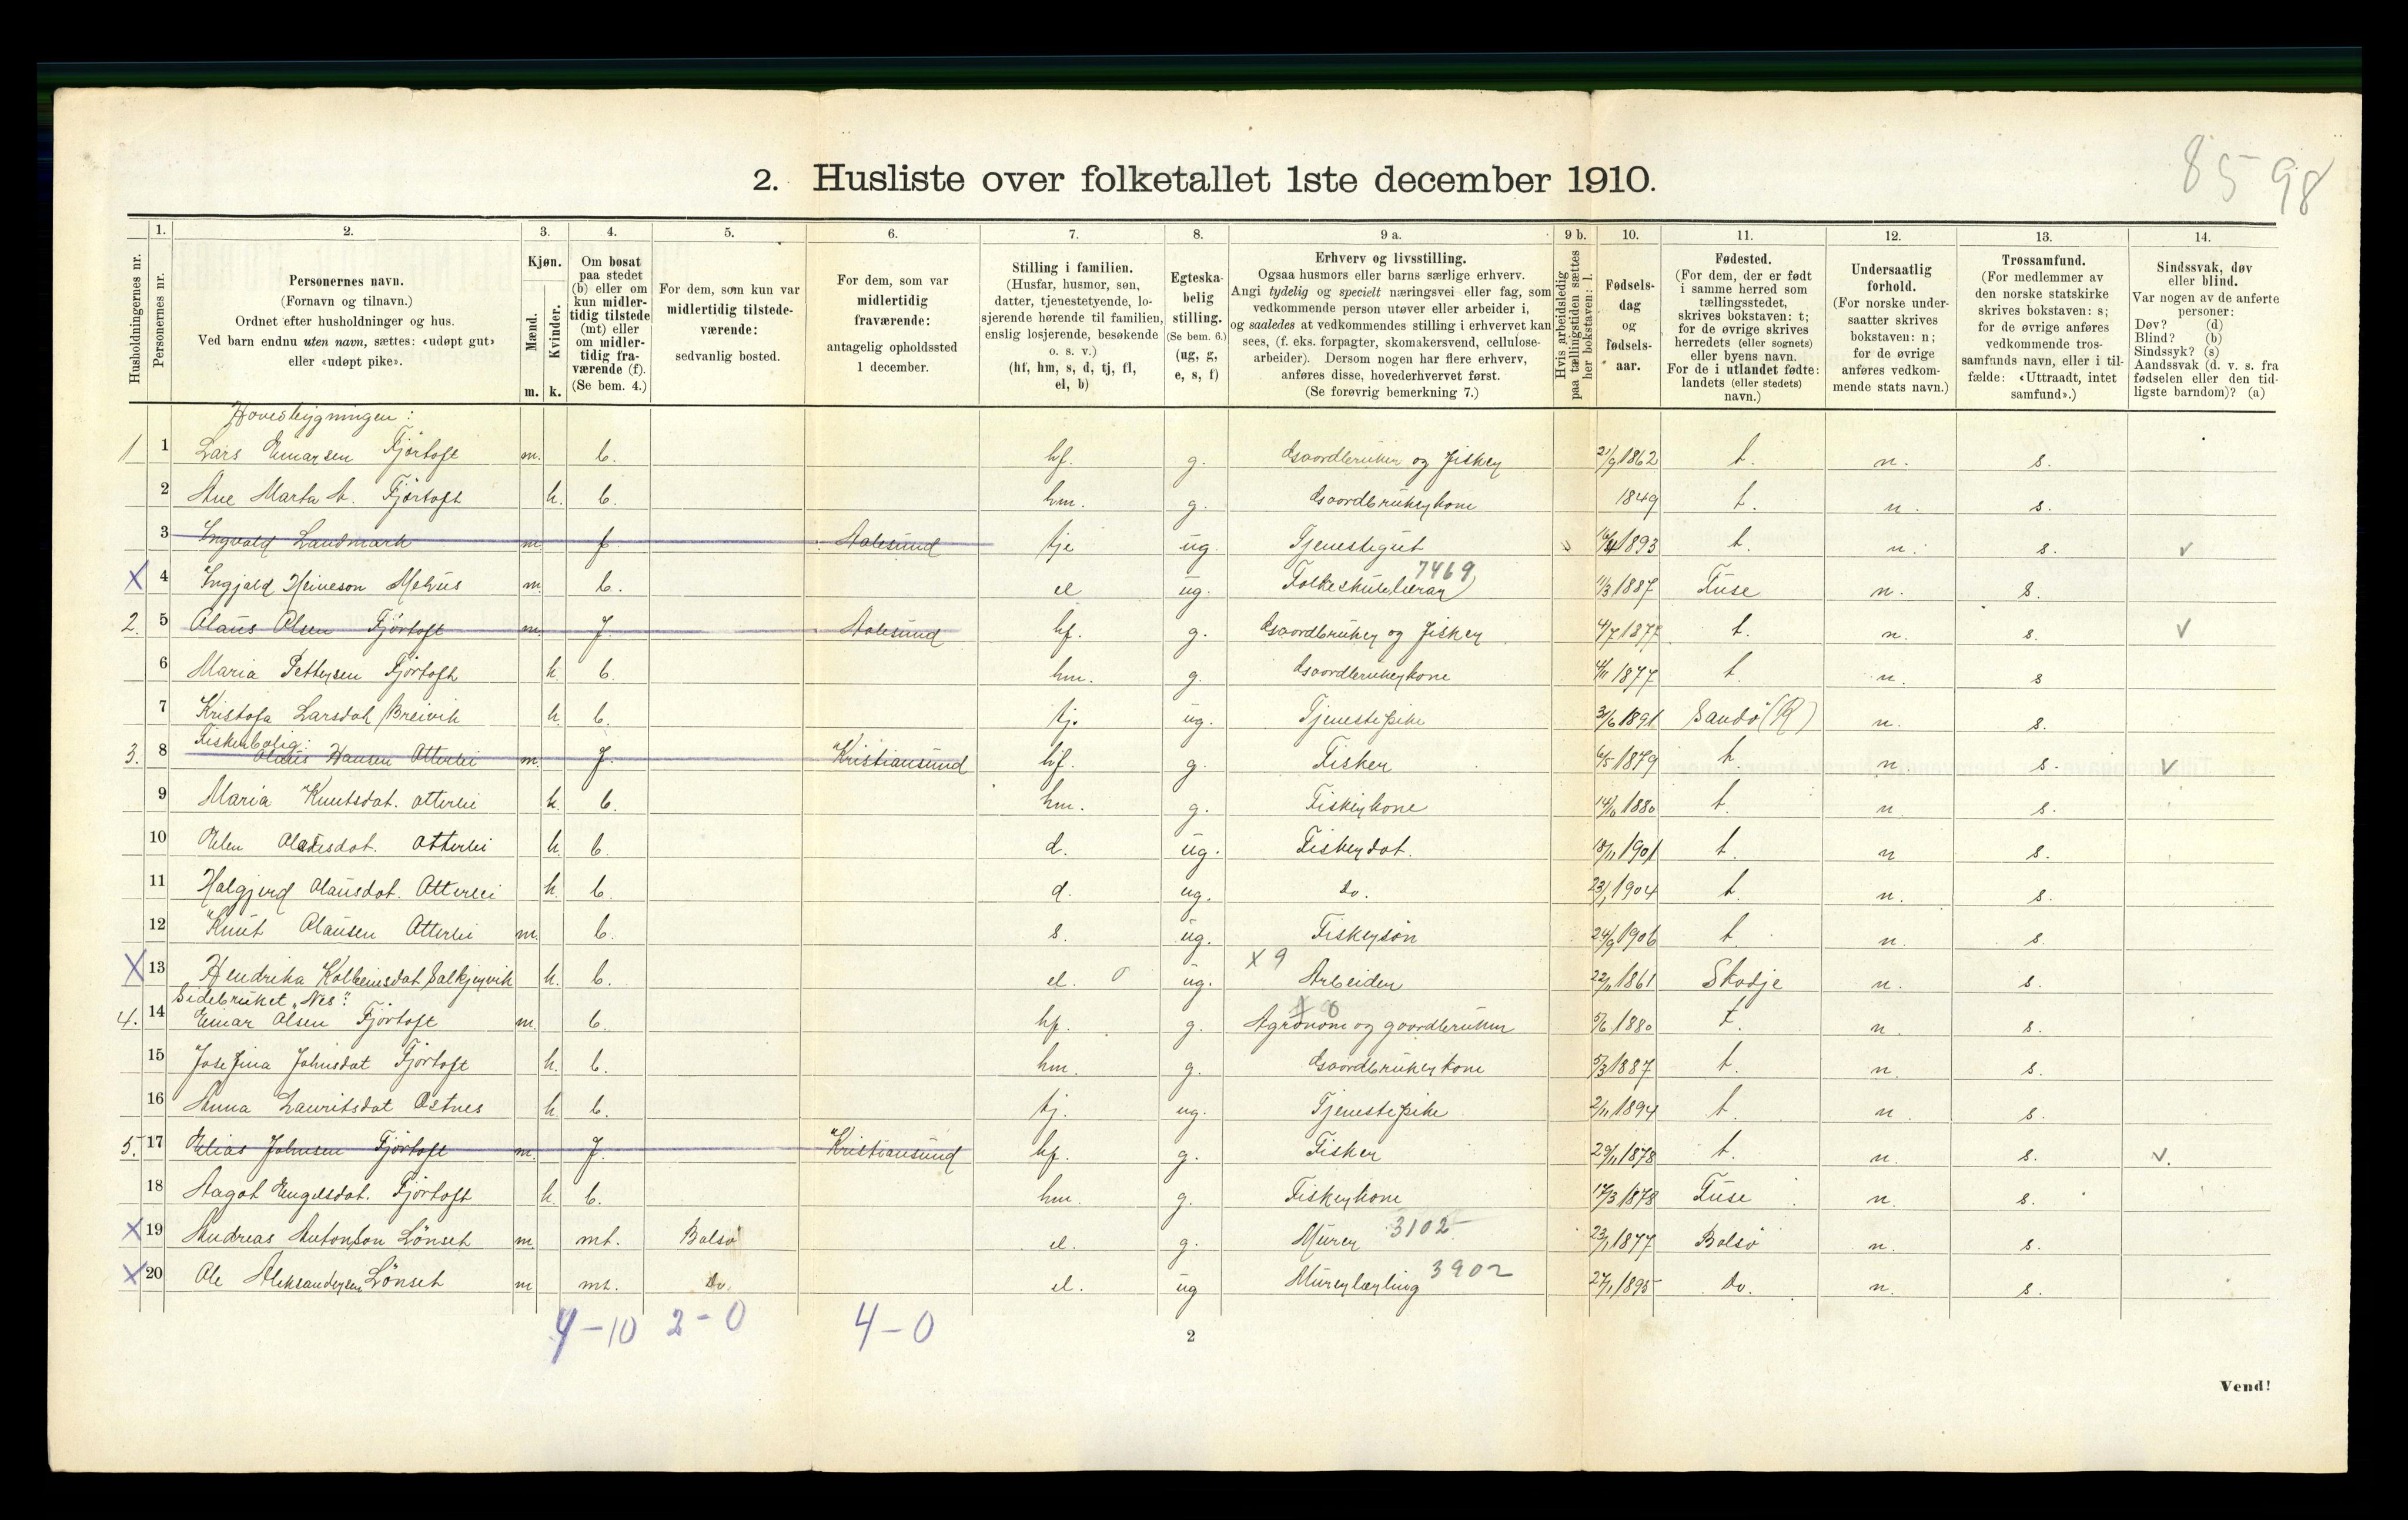 85 98
2. Husliste over folketallet 1ste december 1910.
1. 2. 3. 4. 5. 6. 7. 8. 9 a. 9 b. 10. 11. 12. 13. 14.
Husholdningernes nr.
Personernes nr.
Personernes navn.
(Fornavn og tilnavn.)
Ordnet efter husholdninger og hus.
Ved barn endnu uten navn, sættes: «udøpt gut»
eller «udøpt pike».
Kjøn.
Mænd.
Kvinder.
m. k.
Om bosat
paa stedet
(b) eller om
kun midler-
tidig tilstede
(mt) eller
om midler-
tidig fra-
værende (f).
(Se bem. 4.)
For dem, som kun var
midlertidig tilstede-
værende:
sedvanlig bosted.
For dem, som var
midlertidig
fraværende:
antagelig opholdssted
1 december.
Stilling i familien.
(Husfar, husmor, søn,
datter, tjenestetyende, lo-
sjerende hørende til familien,
enslig losjerende, besøkende
o. s. v.)
(hf, hm, s, d, tj, fl,
el, b)
Egteska-
belig
stilling.
(Se bem. 6.)
(ug, g,
e, s, f)
Erhverv og livsstilling.
Ogsaa husmors eller barns særlige erhverv.
Angi tydelig og specielt næringsvei eller fag, som
vedkommende person utøver eller arbeider i,
og saaledes at vedkommendes stilling i erhvervet kan
sees, (f. eks. forpagter, skomakersvend, cellulose-
arbeider). Dersom nogen har flere erhverv,
anføres disse, hovederhvervet først.
(Se forøvrig bemerkning 7.)
Hvis arbeidsledig
paa tællingstiden sættes
her bokstaven: l.
Fødsels-
dag
og
fødsels-
aar.
Fødested.
(For dem, der er født
i samme herred som
tællingsstedet,
skrives bokstaven: t;
for de øvrige skrives
herredets (eller sognets)
eller byens navn.
For de i utlandet fødte:
landets (eller stedets)
navn.)
Undersaatlig
forhold.
(For norske under-
saatter skrives
bokstaven: n;
for de øvrige
anføres vedkom-
mende stats navn.)
Trossamfund.
(For medlemmer av
den norske statskirke
skrives bokstaven: s;
for de øvrige anføres
vedkommende tros-
samfunds navn, eller i til-
fælde: «Uttraadt, intet
samfund».)
Sindssvak, døv
eller blind.
Var nogen av de anførte
personer:
Døv? (d)
Blind? (b)
Sindssyk? (s)
Aandssvak (d. v. s. fra
fødselen eller den tid-
ligste barndom)? (a)
Hovedbygningen:
1 1 Lars Einarsen Fjörtoft m. b. hf. g. Gaardbruker og Fisker 21/9 1862 t. n. s.
2 Ane Marta A. Fjörtoft k. b. hm. g. Gaardbrukerkone 1849 t. n. s.
3 Ingvald Landmark m f Aalesund tje ug. Tjenestegut 1893 t. n. s. v
X 4 Ingjald Heineson Melvis m. b. el ug. Folkeskulelærar 7469 11/3 1887 Fuse n. s.
2. 5 Olaus Olsen Fjörtoft m. f. Aalesund hf. g. Gaardbruker og Fisker 4/7 1877 t. n. s. v
6 Maria Pettersen Fjörtoft k. b. hm. g. Gaardbrukerkone 4/11 1877 t. n. s
7 Kristofa Larsdat Breivik k. b. tj. ug. Tjenestepike 3/6 1891 Sandö (R) n. s.
Fiskerbolig:
3. 8 Olaus Hansen Atterlei m. f. Kristiansund hf. g. Fisker 6/5 1879 t. n. s. v
9 Maria Knutsdat. Atterlei k. b. hm. g. Fiskerkone 1880 t. n s.
10 Elen Olausdat. Atterlei k. b. d. ug. Fiskerdat. 18/11 1901 t. n s.
11 Halgjerd Olausdat. Atterlei k. b. d. ug. do. 23/1 1904 t n. s.
12 Knut Olausen Atterlei m. b. s. ug. Fiskersön 24/9 1906 t n. s.
X 13 Hendrika Kolbeinsdat k. b. el. o ug. x 9 Arbeider 22/11 1861 Skodje n. s.
Sidebruket „Nes":
4. 14 Einar Olsen Fjörtoft m. b. hf. g. Agronom og gaardbruker 5/6 1880 t. n. s.
15 Josefina Johnsdat Fjörtoft k. b. hm. g. Gaardbrukerkone 5/3 1887 t. n. s.
16 Anna Lauritsdat Östnes k. b. tj. ug. Tjenestepike 2/11 1894 t. n. s.
5. 17 Elias Johnsen Fjörtoft m. f. Kristiansund hf. g. Fisker 29/11 1878 t. n. s. v.
18 Aagot Engelsdat. Fjörtoft k. b. hm. g. Fiskerkone 17/3 1878 Fuse n. s.
X 19 Andreas Antonson Lönset m mt. Bolsö el. g. Murer 3102 23/1 1877 Bolsö n. s.
X 20 Ole Aleksandersen Lönset m mt. Do. el. ug Murerlærling 3902 27/1 1895 Do. n. s.
4-10 2-0 4-0
2
Vend!